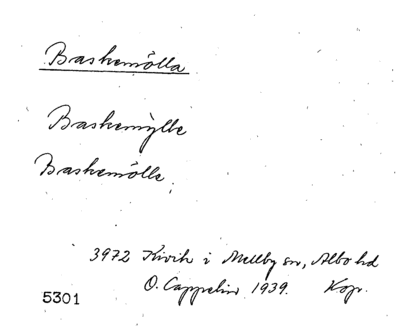 Baskemölla
Baskemÿlle
Baskemölle.
3972 Kivik i Mellby sn, Albo hd
O. Cappelin 1939. Kop.
5301